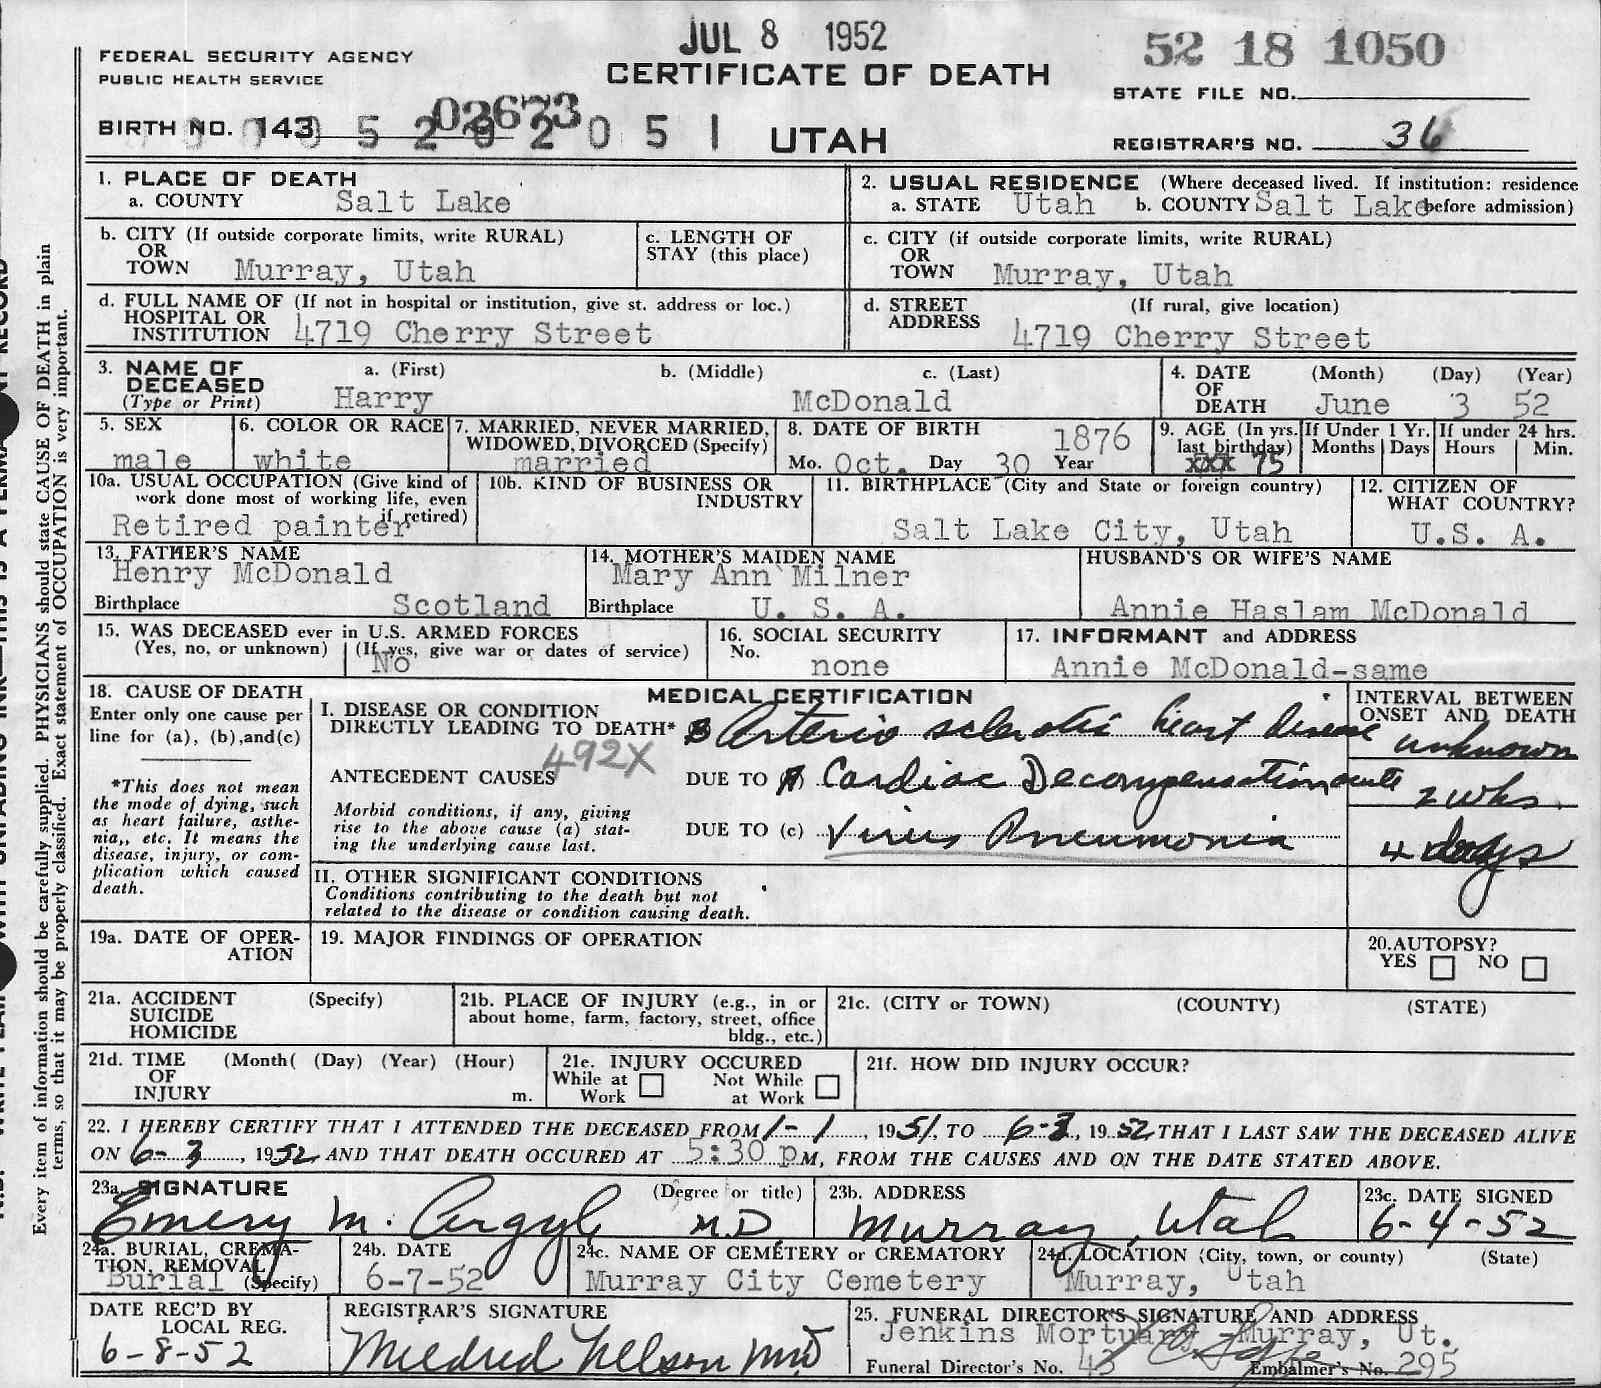 JUL 8 1952
52 18 1050
FEDERAL SECURITY AGENCY
PUBLIC HEALTH SERVICE
CERTIFICATE OF DEATH
STATE FILE NO.
02673
BIRTH NO. 143
UTAH
REGISTRAR'S NO. 36
1. PLACE OF DEATH
a. COUNTY Salt Lake
2. USUAL RESIDENCE (Where deceased lived. If institution: residence
a. STATE Utah b. COUNTY Salt Lake before admission)
b. CITY (If outside corporate limits, write RURAL)
OR
TOWN Murray, Utah
c. LENGTH OF
STAY (this place)
c. CITY (if outside corporate limits, write RURAL)
OR
TOWN Murray, Utah
d. FULL NAME OF (If not in hospital or institution, give st. address or loc.)
HOSPITAL OR
INSTITUTION 4719 Cherry Street
d. STREET (If rural, give location)
ADDRESS 4719 Cherry Street
3. NAME OF a. (First) b. (Middle) c. (Last)
DECEASED
(Type or Print) Harry McDonald
4. DATE (Month) (Day) (Year)
OF
DEATH June 3 52
5. SEX
male
6. COLOR OR RACE
white
7. MARRIED, NEVER MARRIED,
WIDOWED, DIVORCED (Specify)
married
8. DATE OF BIRTH 1876
Mo. Oct. Day 30 Year
9. AGE (In yrs.
last birthday)
xxx 75
If Under 1 Yr.
Months Days
If under 24 hrs.
Hours Min.
10a. USUAL OCCUPATION (Give kind of
work done most of working life, even
if retired)
Retired painter
10b. KIND OF BUSINESS OR
INDUSTRY
11. BIRTHPLACE (City and State or foreign country)
Salt Lake City, Utah
12. CITIZEN OF
WHAT COUNTRY?
U.S. A.
13. FATHER'S NAME
Henry McDonald
Birthplace Scotland
14. MOTHER'S MAIDEN NAME
Mary Ann Milner
Birthplace U. S. A.
HUSBAND'S OR WIFE'S NAME
Annie Haslam McDonald
15. WAS DECEASED ever in U.S. ARMED FORCES
(Yes, no, or unknown) (If yes, give war or dates of service)
No
16. SOCIAL SECURITY
No.
none
17. INFORMANT and ADDRESS
Annie McDonald-same
18. CAUSE OF DEATH
Enter only one cause per
line for (a), (b),and(c)
*This does not mean
the mode of dying, such
as heart failure, asthe-
nia,, etc. It means the
disease, injury, or com-
plication which caused
death.
MEDICAL CERTIFICATION
I. DISEASE OR CONDITION
DIRECTLY LEADING TO DEATH* B Arterio sclerotic heart disease
492X
ANTECEDENT CAUSES DUE TO A Cardiac Decompensation acute
Morbid conditions, if any, giving
rise to the above cause (a) stat-
ing the underlying cause last.
DUE TO (c) Virus Pneumonia
INTERVAL BETWEEN
ONSET AND DEATH
unknown
2 wks.
4 days
II. OTHER SIGNIFICANT CONDITIONS
Conditions contributing to the death but not
related to the disease or condition causing death.
19a. DATE OF OPER-
ATION
19. MAJOR FINDINGS OF OPERATION
20. AUTOPSY?
YES NO
21a. ACCIDENT (Specify)
SUICIDE
HOMICIDE
21b. PLACE OF INJURY (e.g., in or
about home, farm, factory, street, office
bldg., etc.)
21c. (CITY or TOWN) (COUNTY) (STATE)
21d. TIME (Month( (Day) (Year) (Hour)
OF
INJURY m.
21e. INJURY OCCURED
While at Work Not While at Work
21f. HOW DID INJURY OCCUR?
22. I HEREBY CERTIFY THAT I ATTENDED THE DECEASED FROM 1-1, 1951, TO 6-3, 1952 THAT I LAST SAW THE DECEASED ALIVE
ON 6-3, 1952 AND THAT DEATH OCCURED AT 5:30 pM, FROM THE CAUSES AND ON THE DATE STATED ABOVE.
23a. SIGNATURE (Degree or title)
Emery M. Argyle M.D.
23b. ADDRESS
Murray, Utah
23c. DATE SIGNED
6-4-52
24a. BURIAL, CREMA-
TION, REMOVAL
Burial (Specify)
24b. DATE
6-7-52
24c. NAME OF CEMETERY or CREMATORY
Murray City Cemetery
24d. LOCATION (City, town, or county) (State)
Murray, Utah
DATE REC'D BY
LOCAL REG.
6-8-52
REGISTRAR'S SIGNATURE
Mildred Nelson
25. FUNERAL DIRECTOR'S SIGNATURE AND ADDRESS
Jenkins Mortuary Murray, Ut.
Funeral Director's No. 43 Embalmer's No. 295
Every item of information should be carefully supplied. PHYSICIANS should state CAUSE OF DEATH in plain
terms, so that it may be properly classified. Exact statement of OCCUPATION is very important.